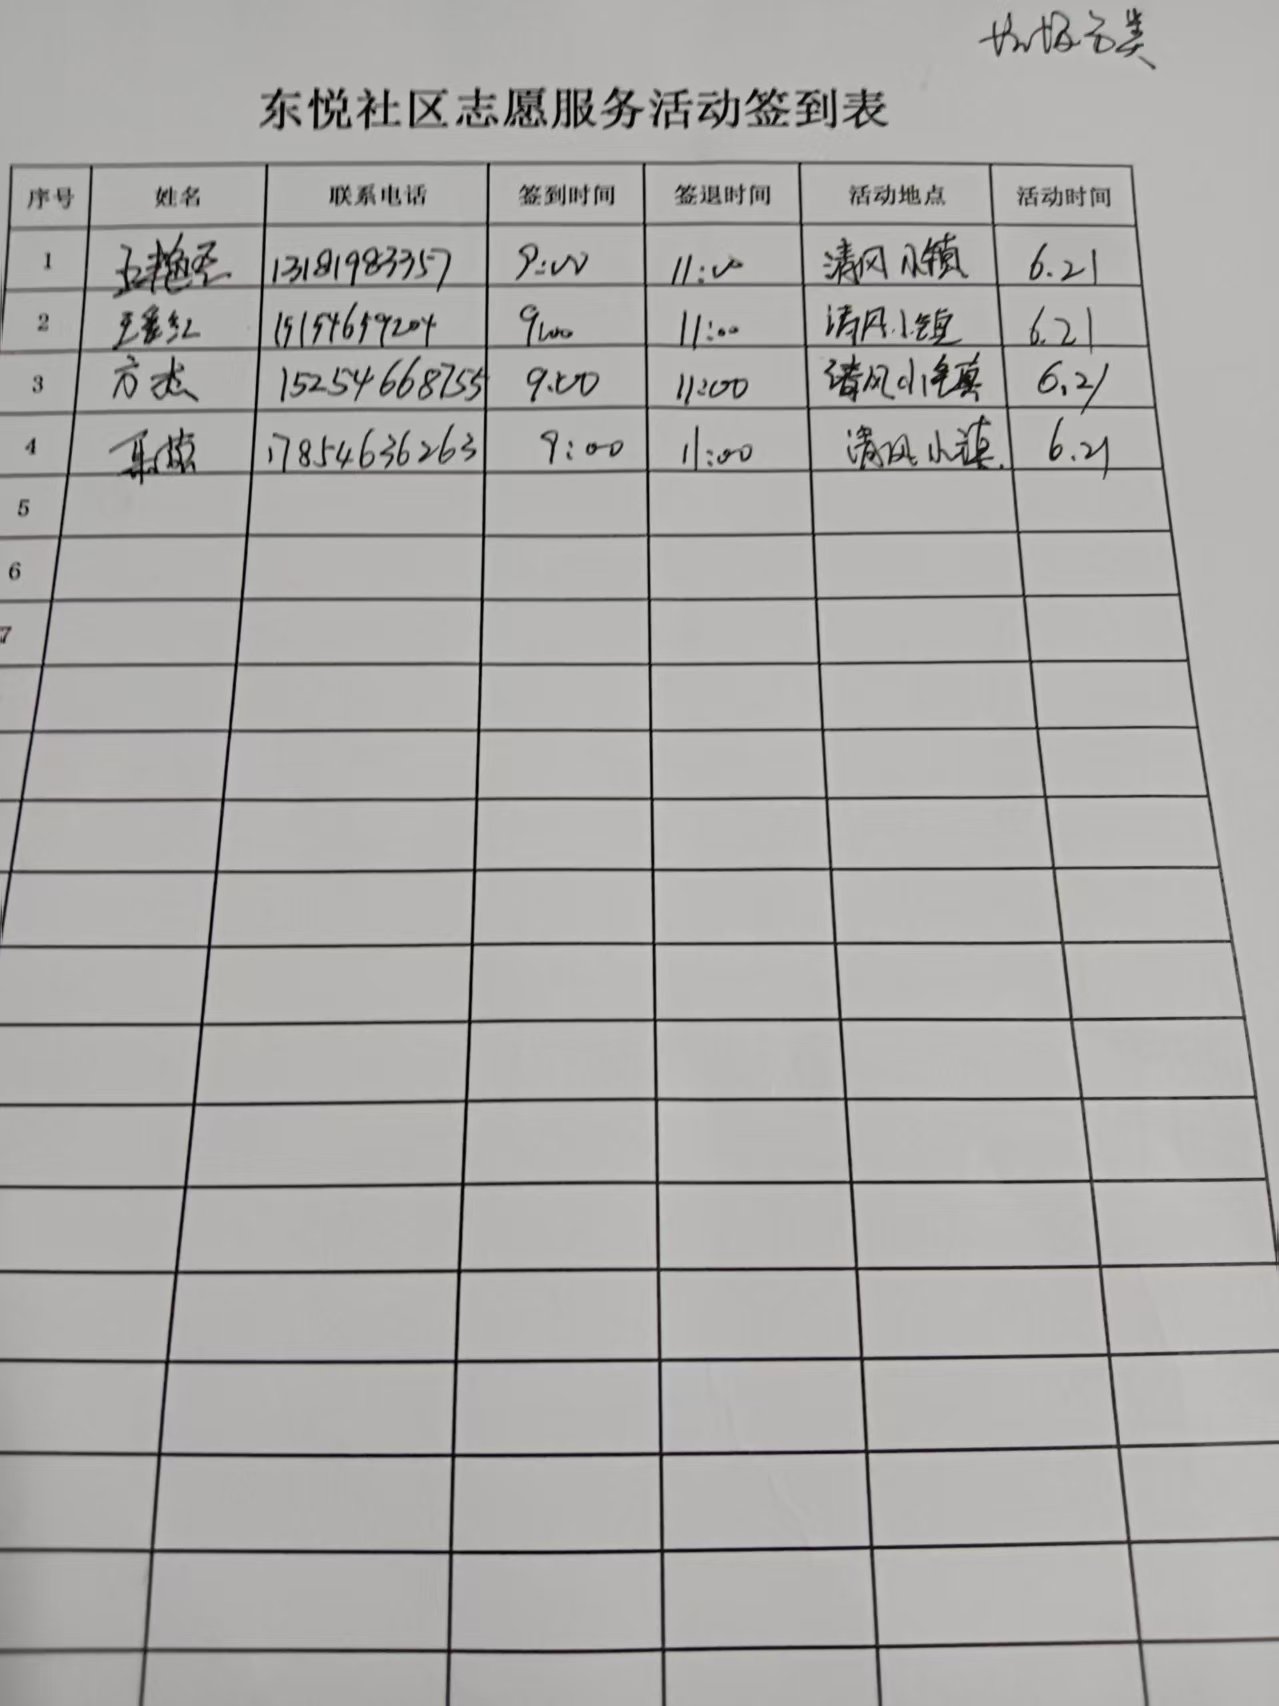 垃圾分类
东悦社区志愿服务活动签到表
序号 姓名 联系电话 签到时间 签退时间 活动地点 活动时间
1 13181983357 9:00 11:00 清风小镇 6.21
2 15154659204 9:00 11:00 清风小镇 6.21
3 方杰 15254668755 9:00 11:00 清风小镇 6.21
4 17854636263 9:00 11:00 清风小镇 6.21
5
6
7